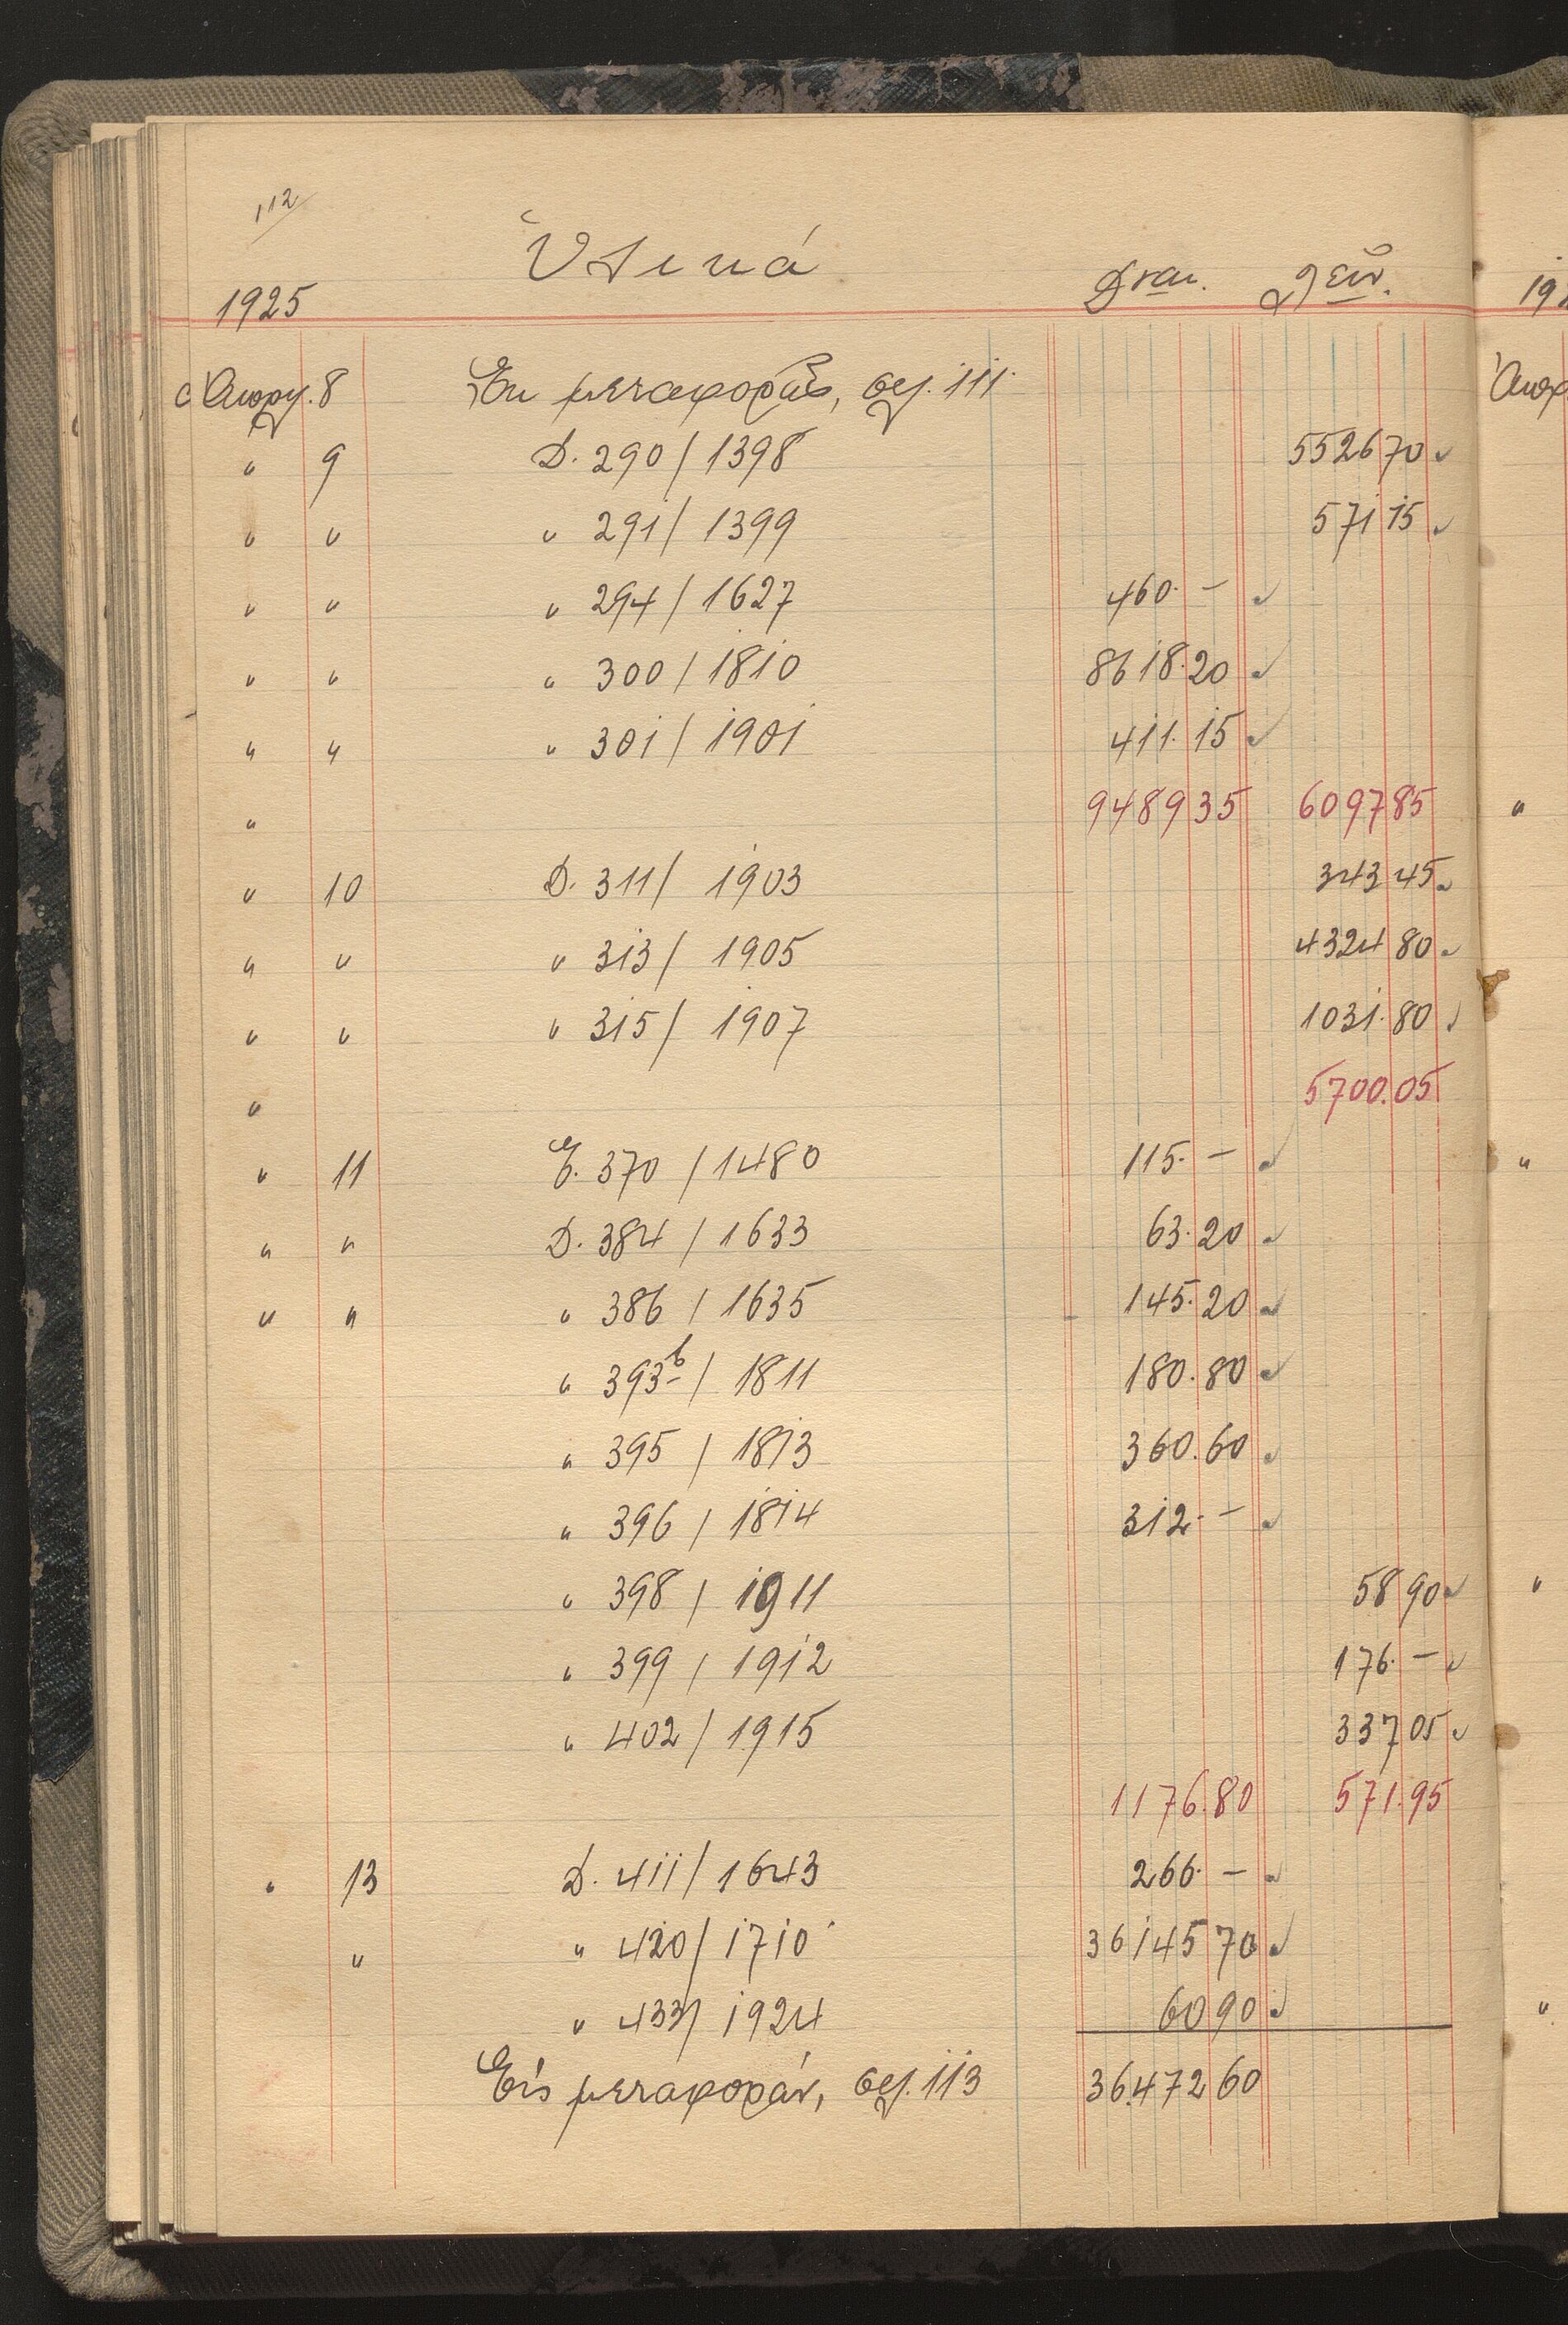 112
Ὑλικά
1925 Δραχ. Λεῦ.
Ἀπρλ. 8 Ἐκ μεταφορᾶς, σελ. 111
" 9 D. 290 / 1398 5526 70
" " " 291 / 1399 571 15
" " " 294 / 1627 460. —
" " " 300 / 1810 8618.20
" " " 301 / 1901 411.15
" 9489 35 6097 85
" 10 D. 311 / 1903 343 45
" " " 313 / 1905 4324 80
" " " 315 / 1907 1031.80
" 5700.05
" 11 E. 370 / 1480 115. —
" " D. 384 / 1633 63.20
" " " 386 / 1635 145.20
" 393b / 1811 180.80
" 395 / 1813 360.60
" 396 / 1814 312. —
" 398 / 1911 58 90
" 399 / 1912 176. —
" 402 / 1915 337 05
1176.80 571.95
" 13 D. 411 / 1643 266. —
" " 420 / 1710 36145 70
" 433 / 1924 60 90
Εἰς μεταφοράν, σελ. 113 36.472 60
"
"
"
"